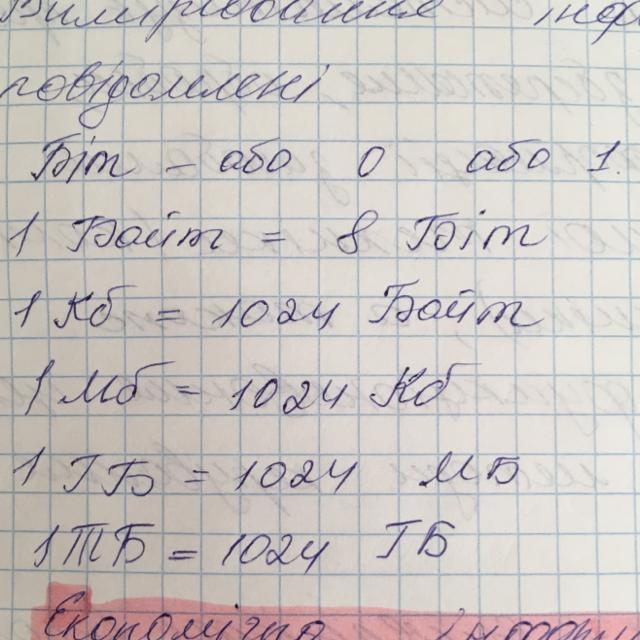 Вимірювання інф
повідомлені
Біт – або 0 або 1.
1 Байт = 8 Біт
1 Кб = 1024 Байт
1 Мб = 1024 Кб
1 ГБ = 1024 МБ
1 ТБ = 1024 ГБ
Економічна